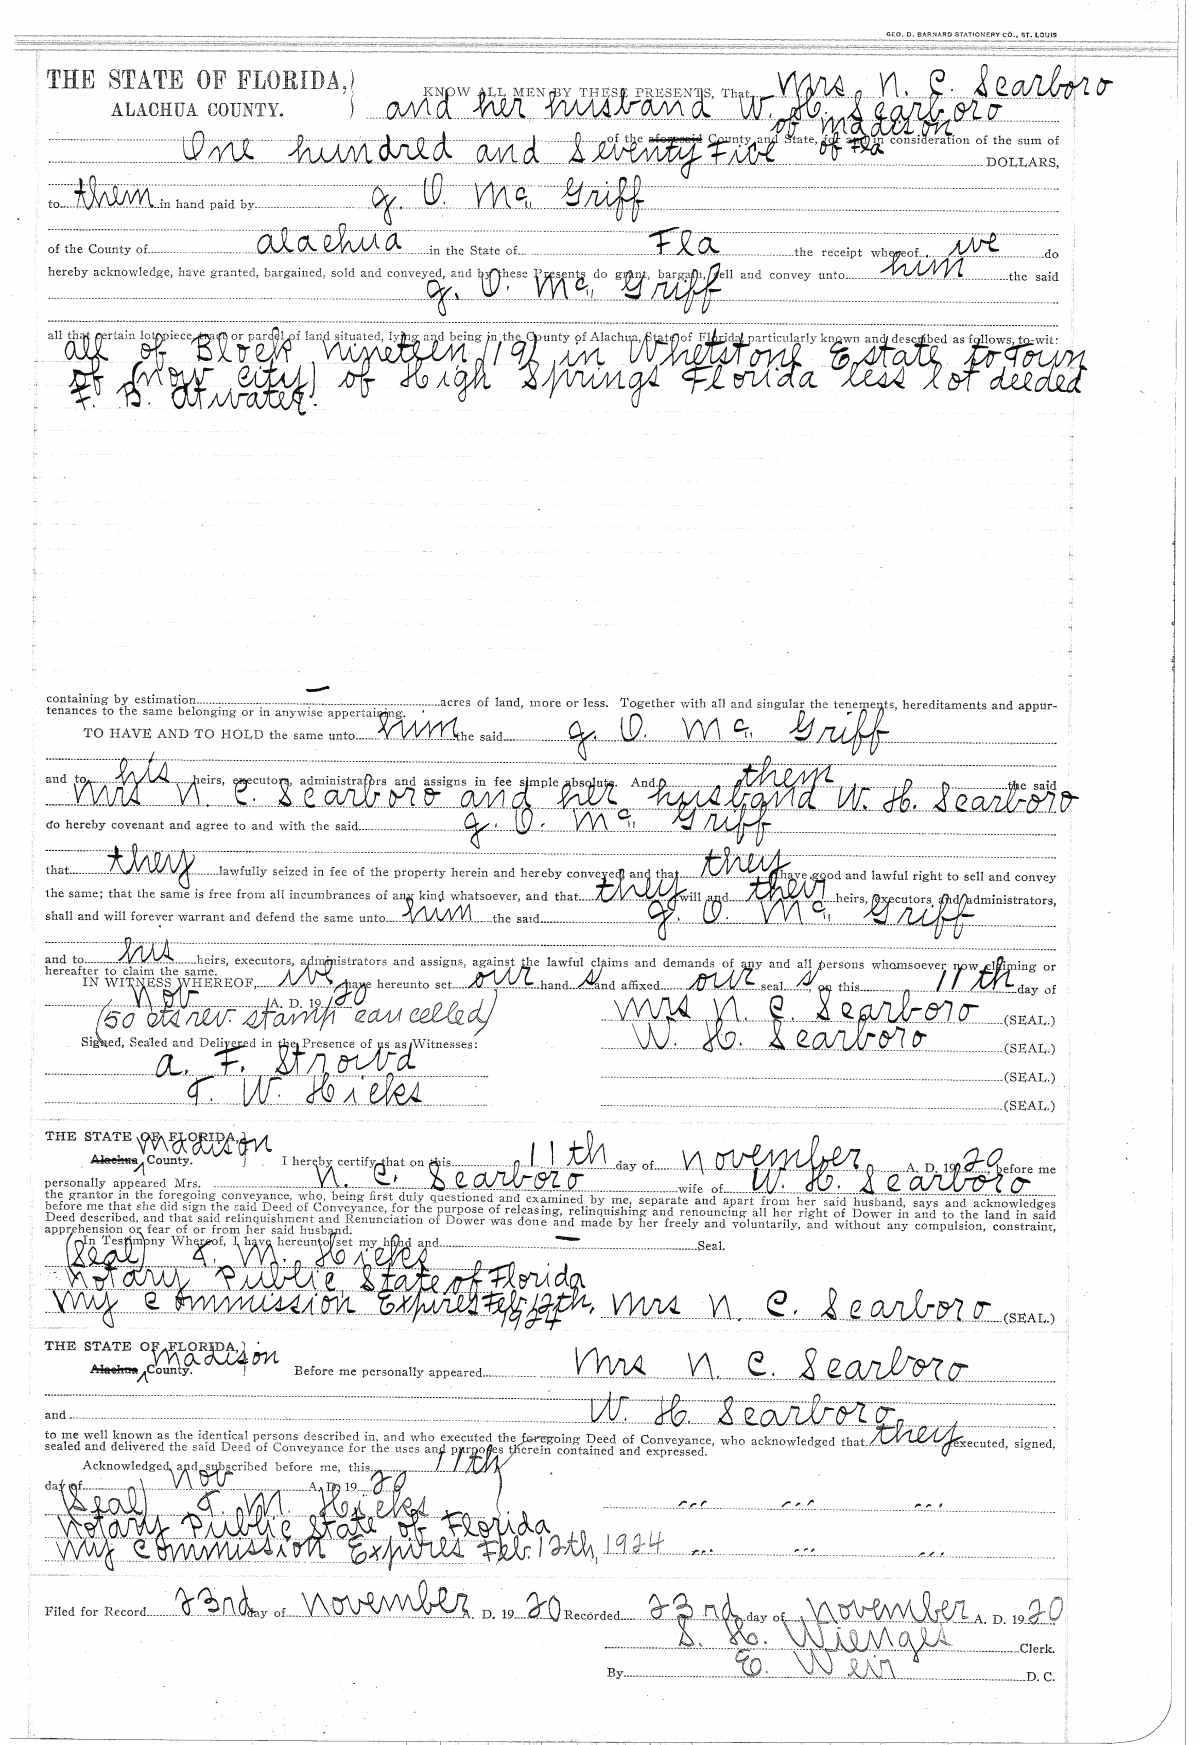 GEO. D. BARNARD STATIONERY CO., ST. LOUIS
THE STATE OF FLORIDA,) KNOW ALL MEN BY THESE PRESENTS, That Mrs. N. C. Searboro
ALACHUA COUNTY. ) and her husband W. H. Searboro
of Madison
of the aforesaid County and State, for and in consideration of the sum of
One hundred and Seventy Five of Fla DOLLARS,
to them in hand paid by J. O. Mc. Griff
of the County of Alachua in the State of Fla the receipt whereof we do
hereby acknowledge, have granted, bargained, sold and conveyed, and by these Presents do grant, bargain, sell and convey unto him the said
J. O. Mc. Griff
all that certain lot, piece, tract or parcel of land situated, lying and being in the County of Alachua, State of Florida, particularly known and described as follows, to-wit:
all of Block nineteen (19) in Whetstone Estate to Town
of (now city) of High Springs Florida less lot deeded
F. B. Atwater.
containing by estimation — acres of land, more or less. Together with all and singular the tenements, hereditaments and appur-
tenances to the same belonging or in anywise appertaining.
TO HAVE AND TO HOLD the same unto him the said J. O. Mc. Griff
and to his heirs, executors, administrators and assigns in fee simple absolute. And them the said
Mrs N. C. Searboro and her husband W. H. Searboro
do hereby covenant and agree to and with the said J. O. Mc. Griff
that they lawfully seized in fee of the property herein and hereby conveyed and that they have good and lawful right to sell and convey
the same; that the same is free from all incumbrances of any kind whatsoever, and that they will and their heirs, executors and administrators,
shall and will forever warrant and defend the same unto him the said J. O. Mc. Griff
and to his heirs, executors, administrators and assigns, against the lawful claims and demands of any and all persons whomsoever now claiming or
hereafter to claim the same.
IN WITNESS WHEREOF, we have hereunto set our hand s and affixed our seal s on this 11th day of
Nov A. D. 19 20
(50 cts rev. stamp cancelled) Mrs N. C. Searboro (SEAL.)
Signed, Sealed and Delivered in the Presence of us as Witnesses: W. H. Searboro (SEAL.)
A. F. Stroud (SEAL.)
T. W. Hicks (SEAL.)
THE STATE OF FLORIDA,)
Madison
Alachua County. ) I hereby certify that on this 11th day of November A. D. 19 20 before me
personally appeared Mrs. N. C. Searboro wife of W. H. Searboro
the grantor in the foregoing conveyance, who, being first duly questioned and examined by me, separate and apart from her said husband, says and acknowledges
before me that she did sign the said Deed of Conveyance, for the purpose of releasing, relinquishing and renouncing all her right of Dower in and to the land in said
Deed described, and that said relinquishment and Renunciation of Dower was done and made by her freely and voluntarily, and without any compulsion, constraint,
apprehension or fear of or from her said husband.
In Testimony Whereof, I have hereunto set my hand and — Seal.
(Seal) T. M. Hicks
Notary Public State of Florida
My Commission Expires Feb 12th, 1924 Mrs N. C. Searboro (SEAL.)
THE STATE OF FLORIDA,)
Madison
Alachua County. ) Before me personally appeared Mrs N. C. Searboro
and W. H. Searboro
to me well known as the identical persons described in, and who executed the foregoing Deed of Conveyance, who acknowledged that they executed, signed,
sealed and delivered the said Deed of Conveyance for the uses and purposes therein contained and expressed.
Acknowledged and subscribed before me, this 11th
day of Nov A. D. 19 20
(Seal) T. M. Hicks
Notary Public State of Florida
My Commission Expires Feb. 12th, 1924
Filed for Record 23rd day of November A. D. 19 20 Recorded 23rd day of November A. D. 19 20
S. H. Wienges Clerk.
By E. Weir D. C.